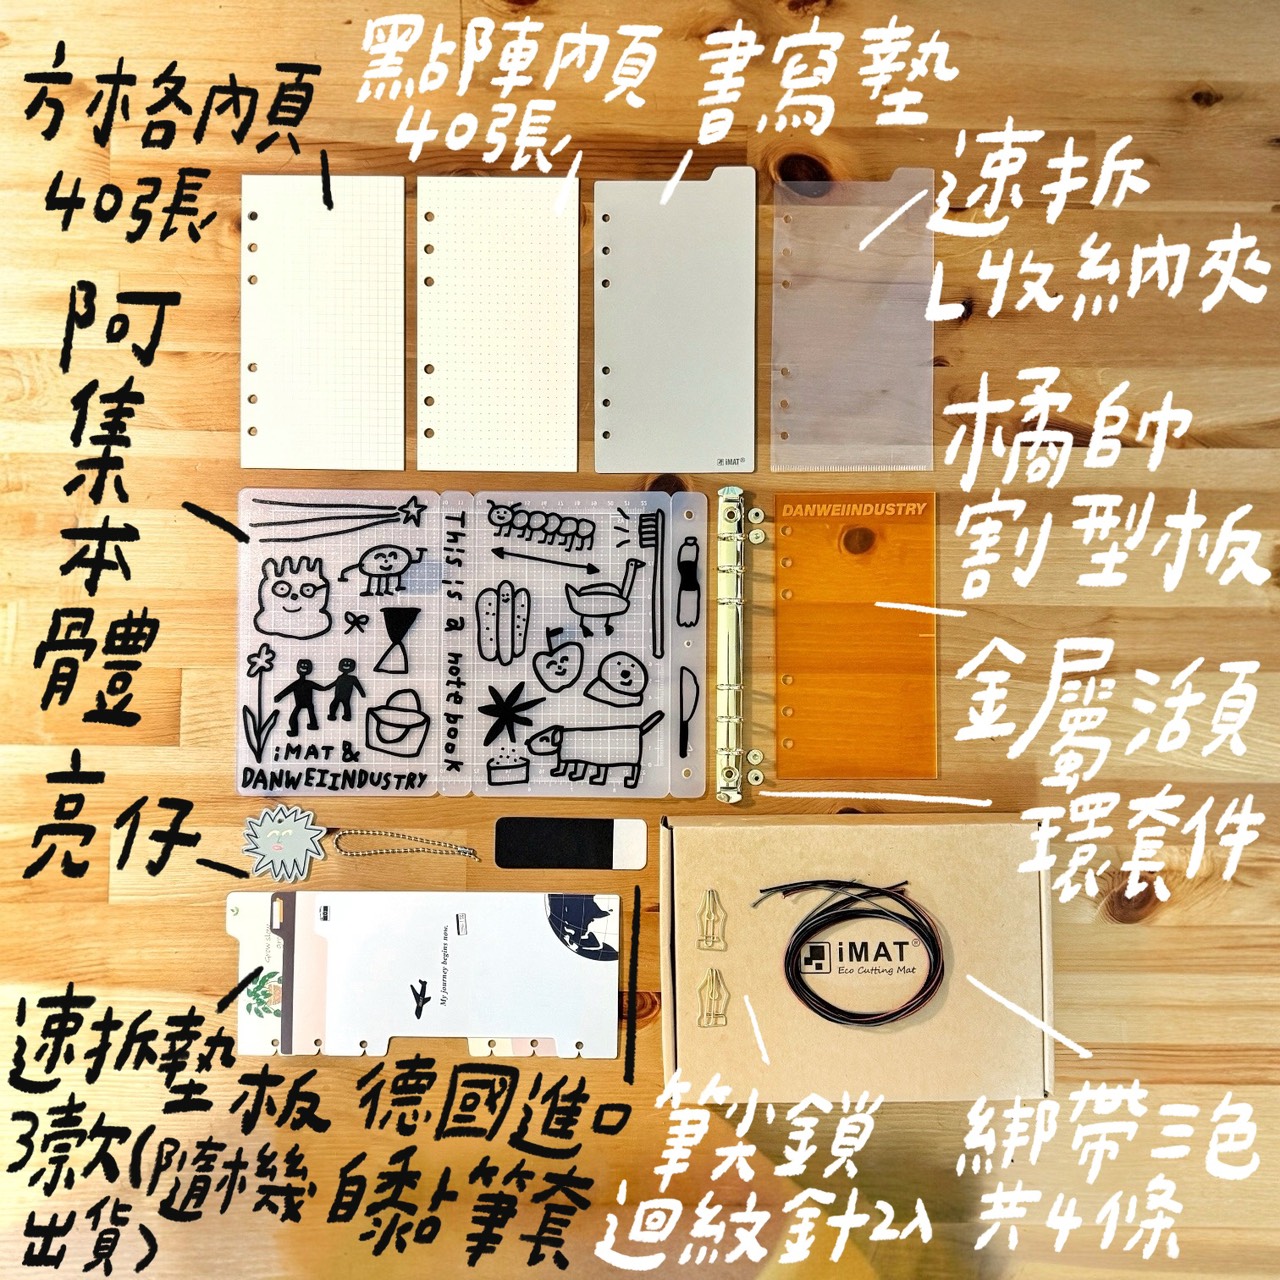 方格內頁
40張
點陣內頁
40張
書寫墊
速拆
L收納夾
阿集本體
亮仔
橘帥
割型板
金屬活頁
環套件
iMAT®
DANWEIINDUSTRY
This is a notebook
iMAT &
DANWEIINDUSTRY
My journey begins now.
iMAT®
Eco Cutting Mat
速拆墊板
3款(隨機
出貨)
德國進口
自黏筆套
筆尖鎖
迴紋針2入
綁帶三色
共4條